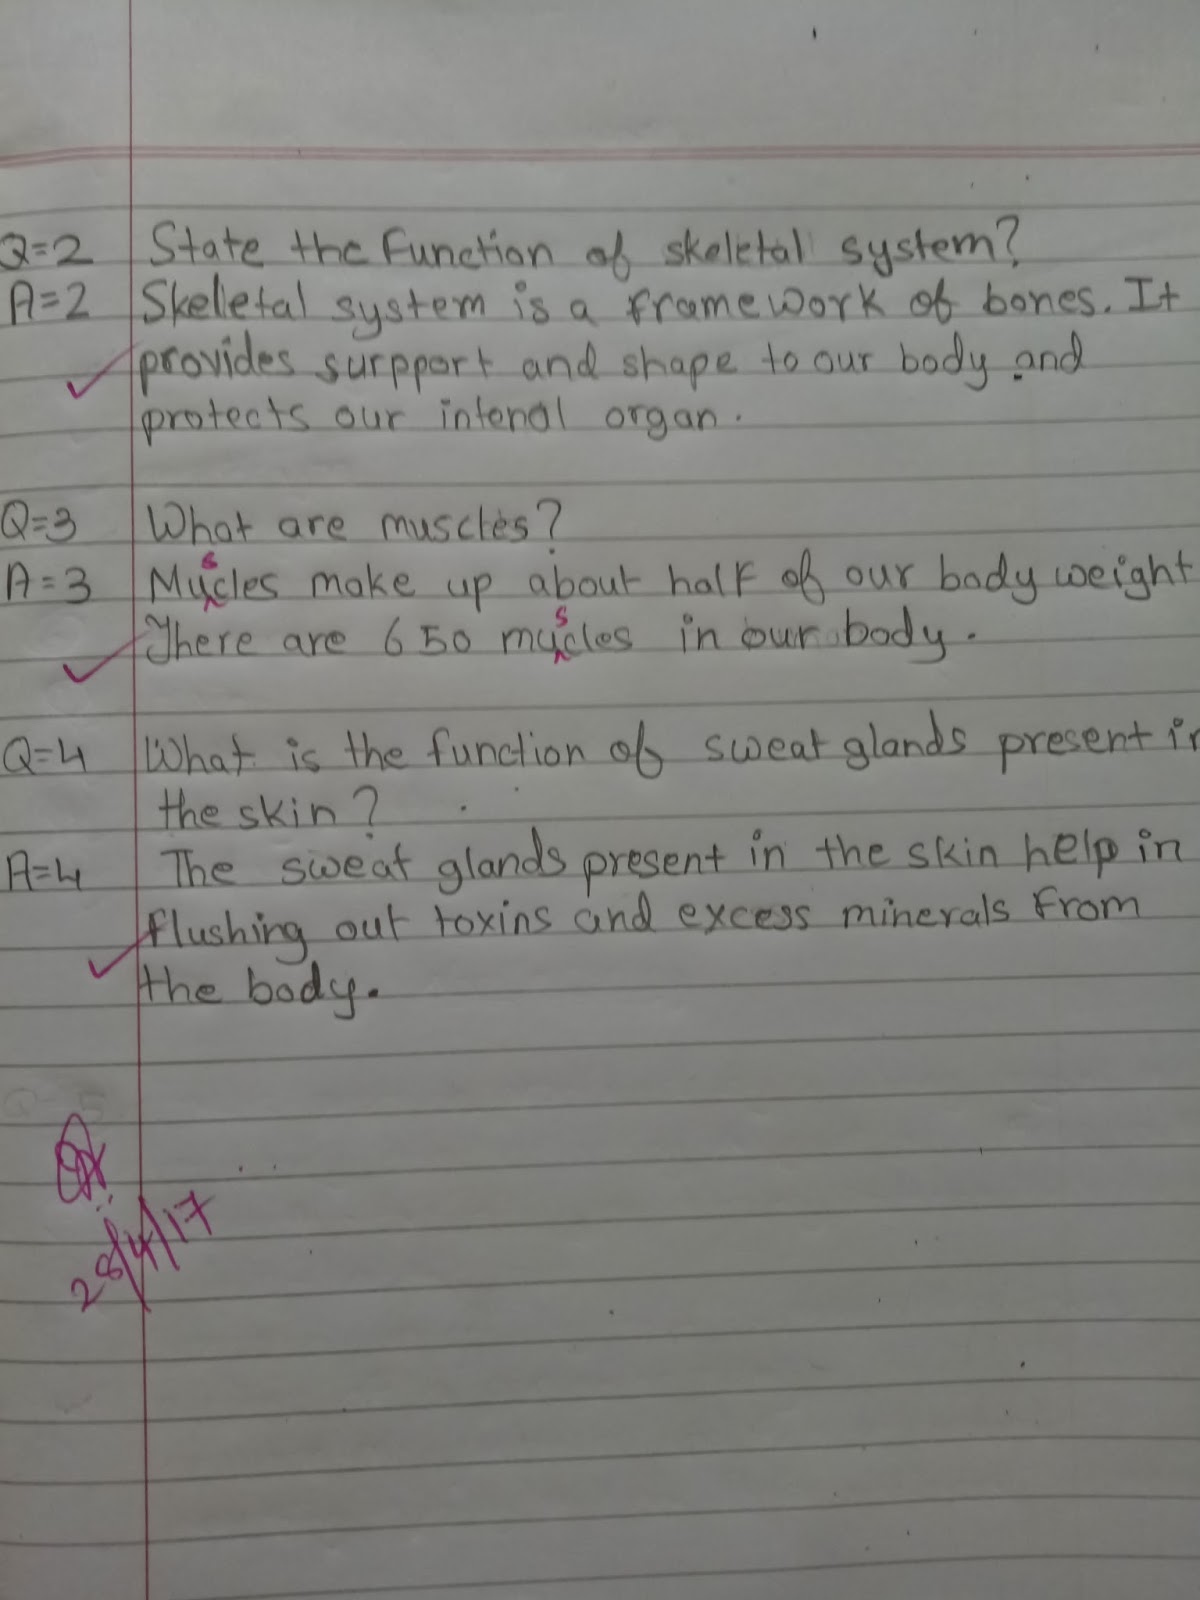 Q=2 State the Function of skeletal system?
A=2 Skeletal system is a framework of bones. It
provides surpport and shape to our body and
protects our intenal organ.
Q=3 What are muscles?
s
A=3 Mucles make up about half of our body weight
s
There are 650 mucles in our body.
Q=4 What is the function of sweat glands present in
the skin?
A=4 The sweat glands present in the skin help in
flushing out toxins and excess minerals from
the body.
28/4/17